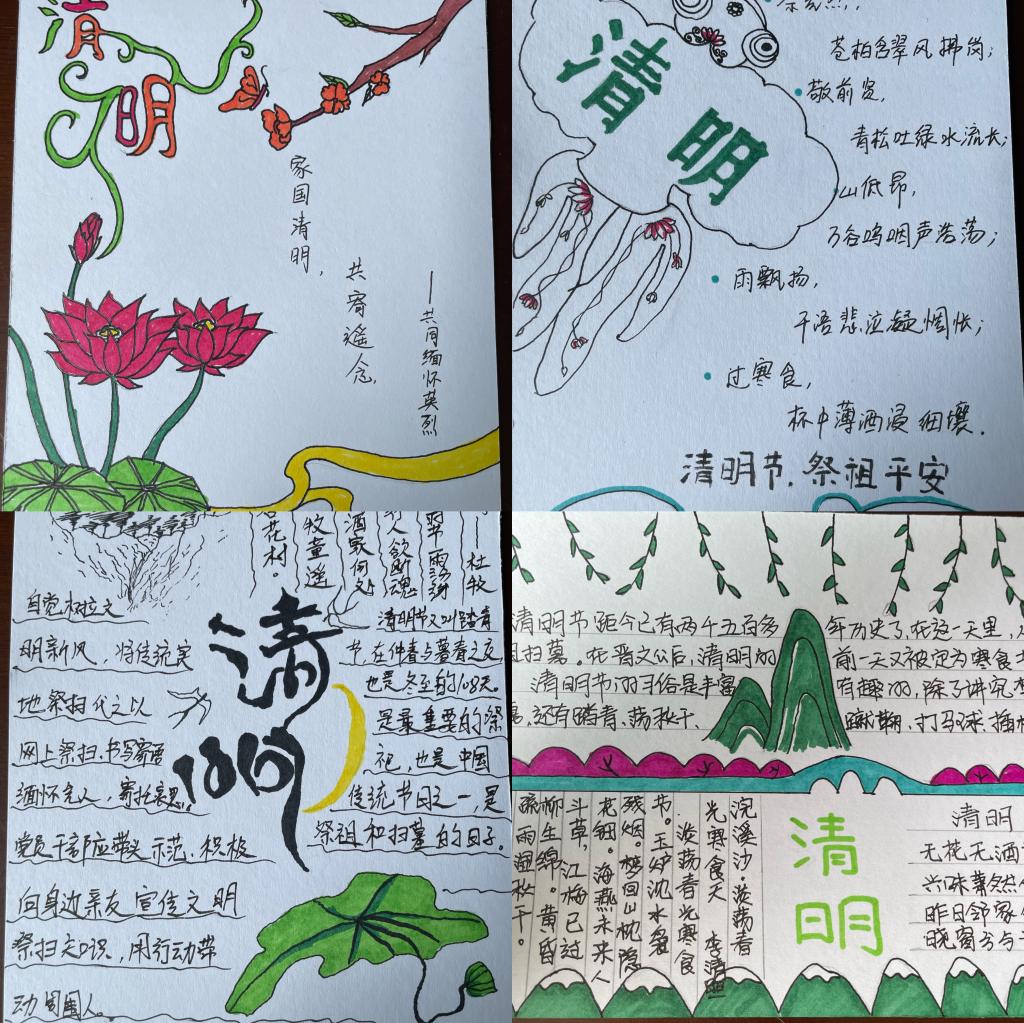 清明
家国清明，
共寄遥念，
——共同缅怀英烈
清明
苍柏名翠风拂岗；
敬前贤，
青松吐绿水流长；
山低昂，
万谷呜咽声浩荡；
雨飘扬，
千语悲泣凝惆怅；
过寒食，
杯中薄酒浸细壤．
清明节．祭祖平安
——杜牧
人欲断魂
酒家何处
牧童遥
花村。
清明
自觉树立文
明新风，将传统实
地祭扫代之以
网上祭扫、书写寄语
缅怀先人，寄托哀思。
党员干部应带头示范，积极
向身边亲友宣传文明
祭扫知识，用行动带
动周围人。
清明节又叫踏青
节，在仲春与暮春之交，
也是冬至的108天。
是最重要的祭
祀，也是中国
传统节日之一，是
祭祖和扫墓的日子。
清明节距今已有两千五百多年历史了，在这一天里，
扫墓。在晋文公后，清明的前一天又被定为寒食
清明节的习俗是丰富有趣的，除了讲究
还有踏青、荡秋千、蹴鞠、打马球、插
浣溪沙·淡荡春
光寒食天 李清照
淡荡春光寒食
节。玉炉沈水袅
残烟。梦回山枕隐
花钿。海燕未来人
斗草，江梅已过
柳生绵。黄昏
疏雨湿秋千。
清明
清明
无花无酒
兴味萧然
昨日邻家
晓窗分与